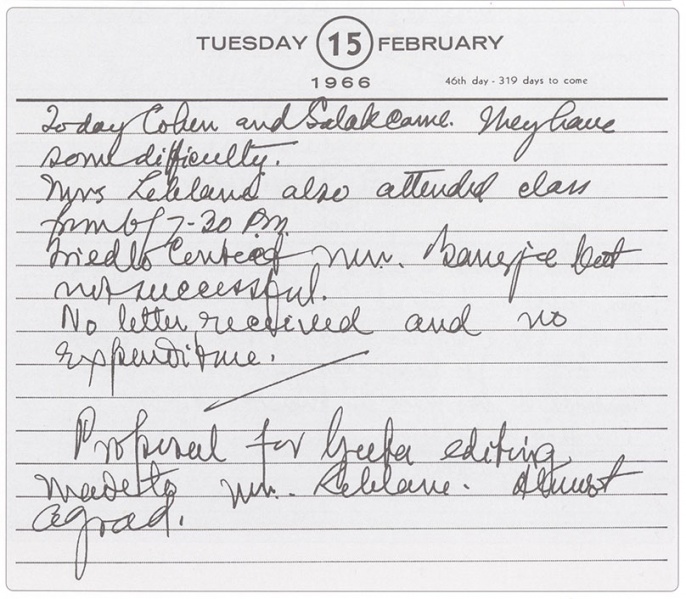 TUESDAY 15 FEBRUARY
1966 46th day - 319 days to come
Today Cohen and Salak came. They have
some difficulty.
Mrs Lebland also attended class
from 6 / 7-30 P.M.
Tried to Contact Mr. Banerjee but
not successful.
No letter received and no
Expenditure.
Proposal for Geeta editing
made to Mr. Leblanc. Almost
agread.